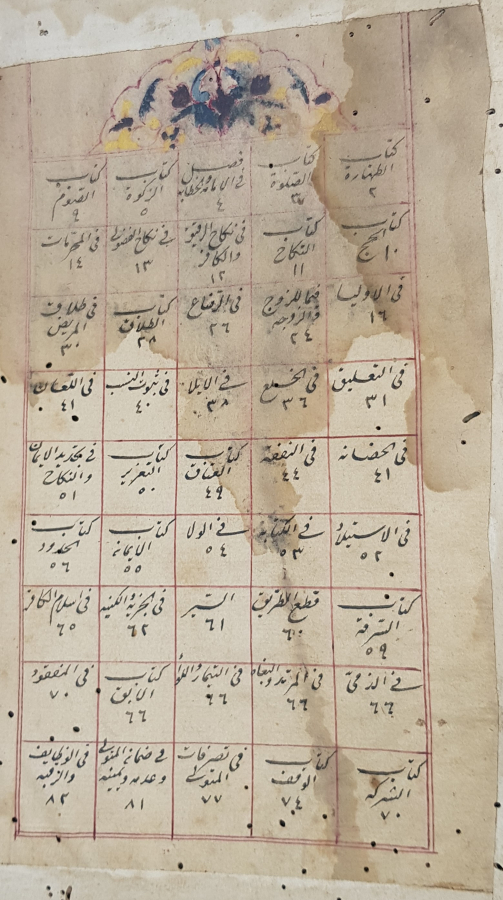 كتاب الطهارة ٢
كتاب الصلوة ٣
فصل في الامامة والخطابة ٤
كتاب الزكوة ٥
كتاب الصوم ٩
كتاب الحج ١٠
كتاب النكاح ١١
في نكاح الرقيق والكافر ١٢
في نكاح الفضولي ١٣
في المحرمات ١٤
في الاوليا ١٦
للزوج والزوجه ٢٤
في الرضاع ٢٦
كتاب الطلاق ٢٨
في طلاق المريض ٣٠
في التعليق ٣١
في الخلع ٣٦
في الايلا ٣٨
في ثبوت النسب ٤٠
في اللعان ٤١
في الحضانه ٤١
في النفقة ٤٤
كتاب العتاق ٤٩
كتاب التعزير ٥٠
في تجديد الايمان والنكاح ٥١
في الاستيلاد ٥٢
في الكتابة ٥٣
في الولا ٥٤
كتاب الايمان ٥٥
كتاب الحدود ٥٦
كتاب السرقة ٥٩
قطع الطريق ٦٠
السير ٦١
في الجزية والكنيسه ٦٢
في اسلام الكافر ٦٥
في الذمي ٦٦
في المرتد والبغاه ٦٦
في ٦٦
كتاب الابق ٦٦
في المفقود ٧٠
كتاب الشركه ٧٠
كتاب الوقف ٧٤
في تصرفات المتولي ٧٧
في ضمان المتولي وعدمه ويمينه ٨١
في الوظايف ٨٢